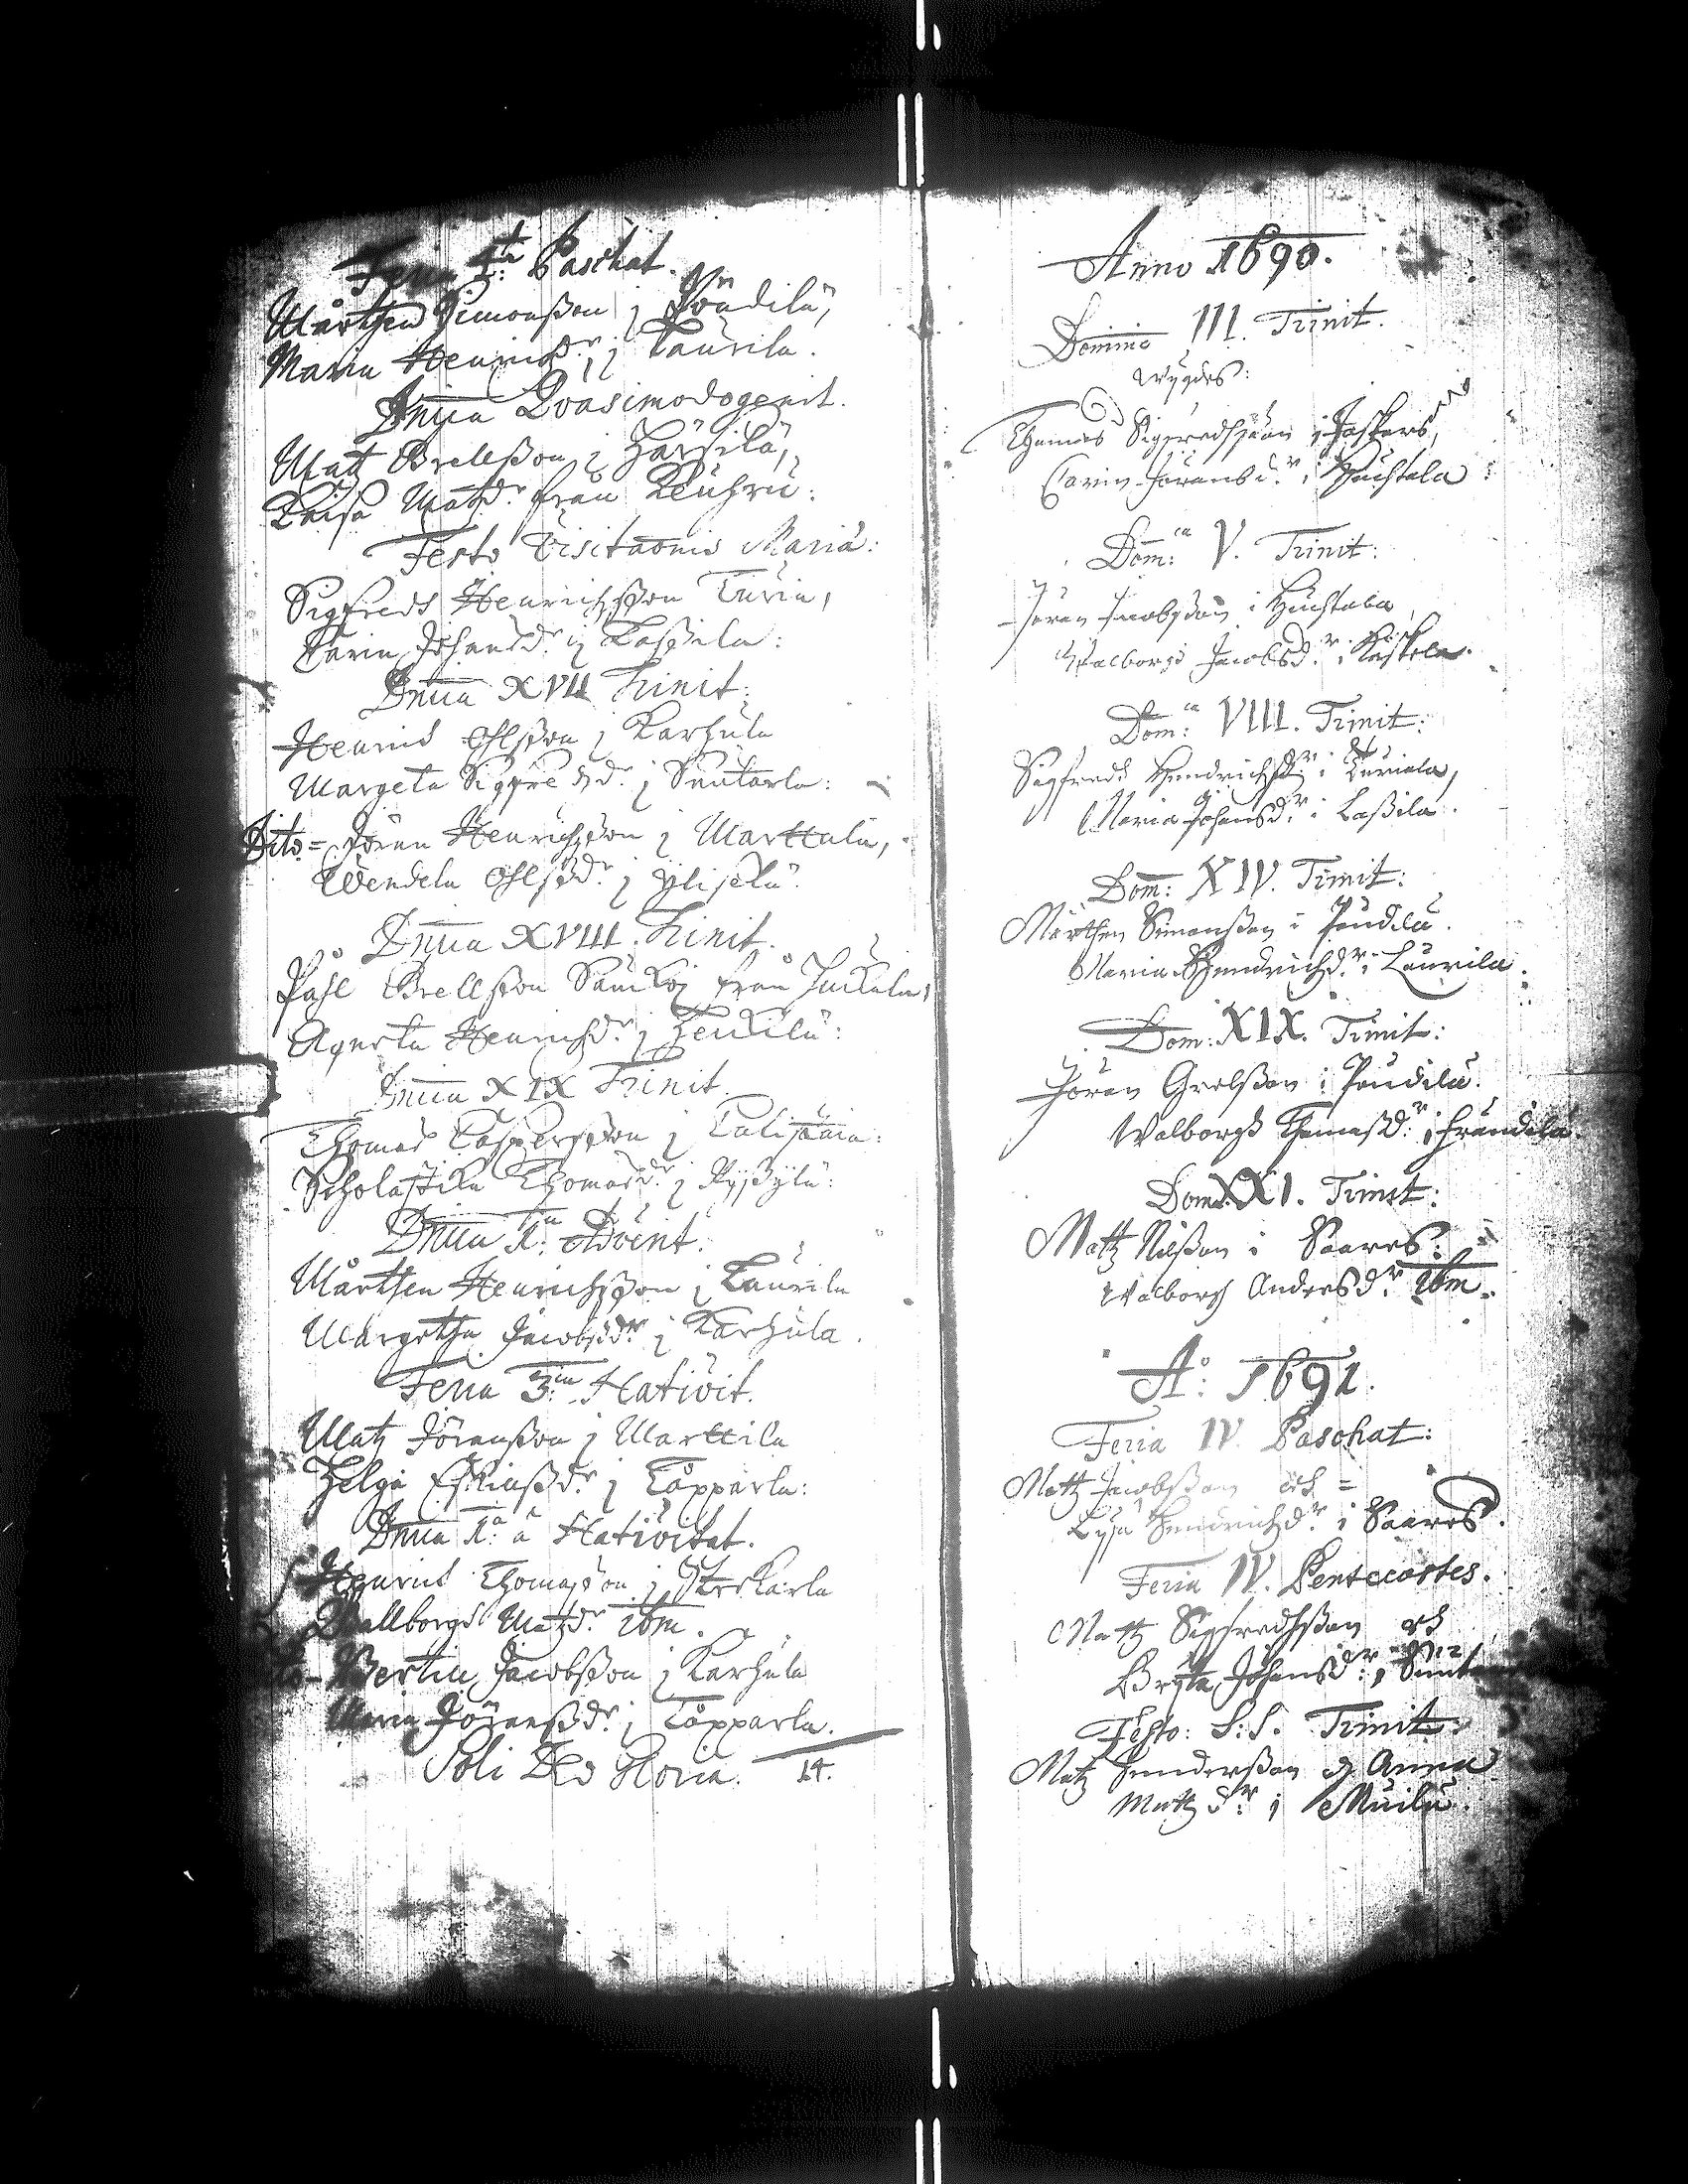 Feria 4ta Paschat.
Mårthen Simonßon j Pöüdilä,
Maria Henrichsdr. j Laurila.
Dnica Qvasimodogenit.
Matz Brellßon j Härsilä,
Kaisa Matzdr. från
Festo Visitaonis Mariä:
Sigfredh Henrichsson
Karin Johansdr. j Laßila:
Dnica XVII Trinit:
Henrich Ohlsson j Karhula
Margeta Sigfredzdr. j Suntarla:
Dito = Jören Henrichsson j Marttila,
Wendela Ohlsdr. j Ylistlä:
Dnica XVIII. Trinit.
Påhl Brellsson från Juckala,
Agneta Henrichsdr. j
Dnica XIX Trinit.
Thomas Caspersson j
Scholastika Thomasdr. j
Dnica 1: Advent.
Mårthen Henrichsson j Laurila
Margetha Jacobsdr. j Karhula.
Feria 3: Nativit.
Matz Jöranßon j Marttila
Helga Eskilsdr. j Töpparla:
Dnica 1: a Nativitat.
Henrich Thomasson j
Wallborgh Matzdr. ibm.
Bertill Jacobßon j Karhula
Maria Jöranßdr. j Töpparla.
Soli Deo Gloria. 14.
Anno 1690.
Dominica III. Trinit.
wijgdes:
Thomas Sigfredhsson i Jaspers,
Carin Jöransdr. i Huchtala:
Dom:ca V. Trinit:
Jören Jacobsson i Huchtala,
Walborgh Jacobsdr. i
Dom:ca VIII. Trinit:
Sigfredh Hendrichsson i
Maria Johansdr. i Laßila.
Dom: XIV. Trinit:
Mårthen Simonßon i Pöüdilä.
Maria Hendrichsdr. i Laurila.
Dom: XIX. Trinit:
Jören Grelsßon i Pöüdilä.
Walborgh Thomasdr. i Frändilä.
Dom: XXI. Trinit:
Mattz Nilsßon i Saares:
Walborgh Andersdr. ibm.
A:o 1691.
Feria IV. Paschat:
Mattz Jacobßon och =
Lysa Hendrichsdr. i Saares.
Feria IV. Pentecostes.
Mattz Sigfredhsßon och
Bryta Johansdr. i
Festo: S:S. Trinit:
Matz Hendersßon & Anna
Mattzdr. i Muilu.